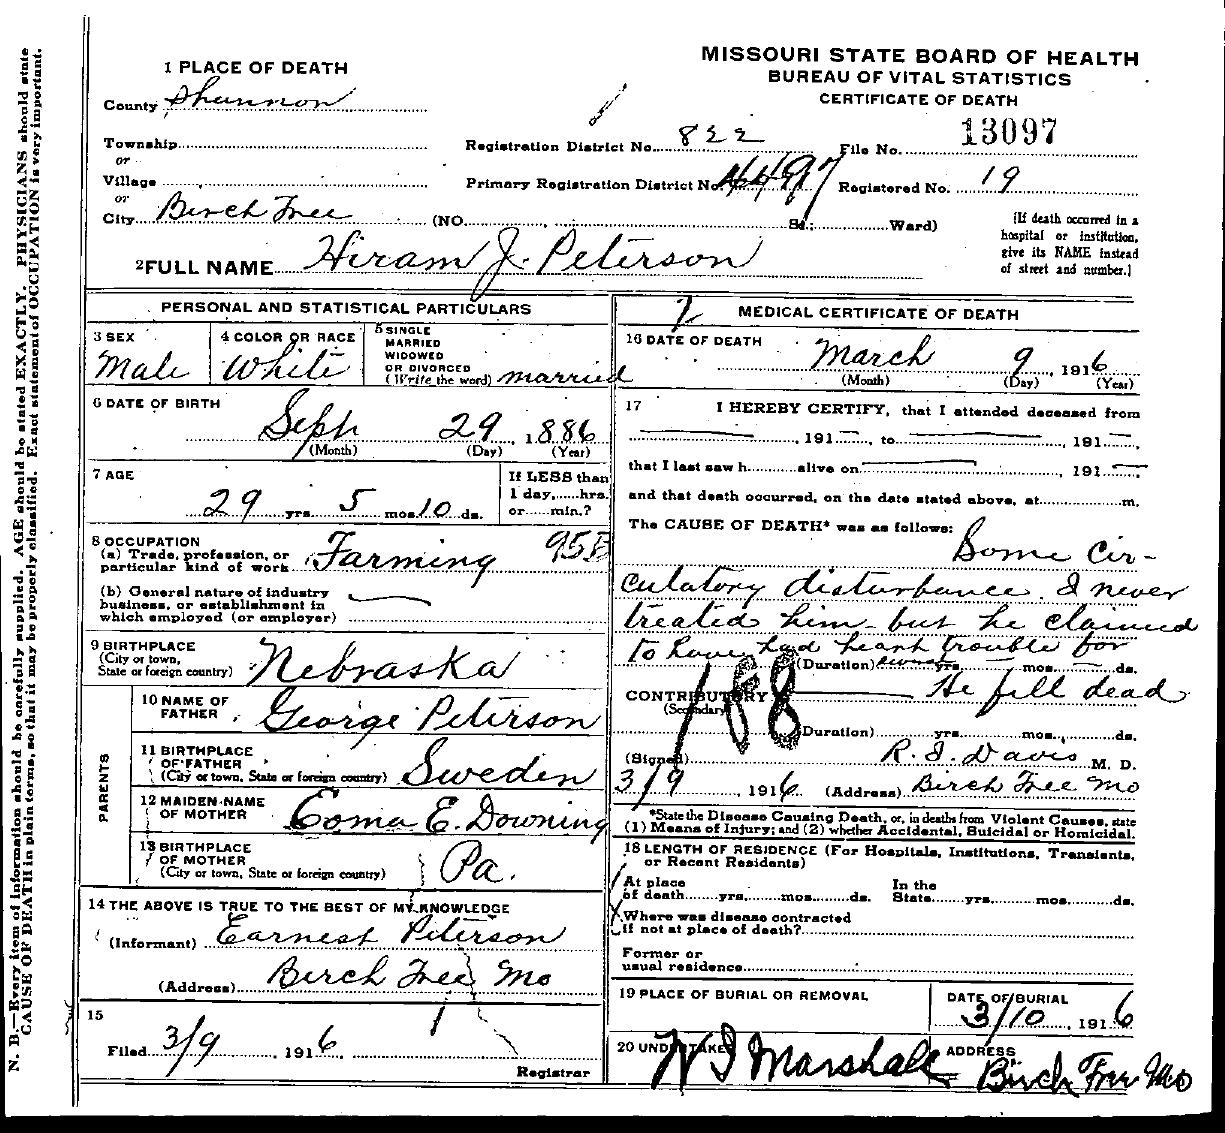 MISSOURI STATE BOARD OF HEALTH
BUREAU OF VITAL STATISTICS
CERTIFICATE OF DEATH
1 PLACE OF DEATH
County Shannon
Township
or
Village
or
City Birch Tree (NO. St.; Ward)
Registration District No. 822 File No. 13097
Primary Registration District No. 4497 Registered No. 19
(If death occurred in a
hospital or institution,
give its NAME instead
of street and number.)
2 FULL NAME Hiram J. Peterson
PERSONAL AND STATISTICAL PARTICULARS
3 SEX
Male
4 COLOR OR RACE
White
5 SINGLE
MARRIED
WIDOWED
OR DIVORCED
(Write the word) married
6 DATE OF BIRTH
Sept 29, 1886
(Month) (Day) (Year)
7 AGE
29 yrs. 5 mos. 10 ds.
If LESS than
1 day,......hrs.
or......min.?
8 OCCUPATION
(a) Trade, profession, or
particular kind of work Farming 95B
(b) General nature of industry
business, or establishment in
which employed (or employer)
9 BIRTHPLACE
(City or town,
State or foreign country) Nebraska
PARENTS
10 NAME OF
FATHER George Peterson
11 BIRTHPLACE
OF FATHER
(City or town, State or foreign country) Sweden
12 MAIDEN NAME
OF MOTHER Coma E. Downing
13 BIRTHPLACE
OF MOTHER
(City or town, State or foreign country) Pa.
14 THE ABOVE IS TRUE TO THE BEST OF MY KNOWLEDGE
(Informant) Earnest Peterson
(Address) Birch Tree Mo
15
Filed 3/9, 1916
Registrar
MEDICAL CERTIFICATE OF DEATH
16 DATE OF DEATH
March 9, 1916
(Month) (Day) (Year)
17 I HEREBY CERTIFY, that I attended deceased from
, 191 , to , 191 ,
that I last saw h alive on , 191
and that death occurred, on the date stated above, at m.
The CAUSE OF DEATH* was as follows:
Some cir-
culatory disturbance. I never
treated him but he claimed
to have had heart trouble for
(Duration) yrs. mos. ds.
CONTRIBUTORY He fell dead
(Secondary)
188
(Duration) yrs. mos. ds.
(Signed) R. I. Davis M. D.
3/9, 1916 (Address) Birch Tree Mo
*State the Disease Causing Death, or, in deaths from Violent Causes, state
(1) Means of Injury; and (2) whether Accidental, Suicidal or Homicidal.
18 LENGTH OF RESIDENCE (For Hospitals, Institutions, Transients,
or Recent Residents)
At place
of death yrs. mos. ds.
In the
State yrs. mos. ds.
Where was disease contracted
if not at place of death?
Former or
usual residence
19 PLACE OF BURIAL OR REMOVAL
DATE OF BURIAL
3/10, 1916
20 UNDERTAKER
W I Marshall
ADDRESS
Birch Tree Mo
N. B.—Every item of information should be carefully supplied. AGE should be stated EXACTLY. PHYSICIANS should state
CAUSE OF DEATH in plain terms, so that it may be properly classified. Exact statement of OCCUPATION is very important.